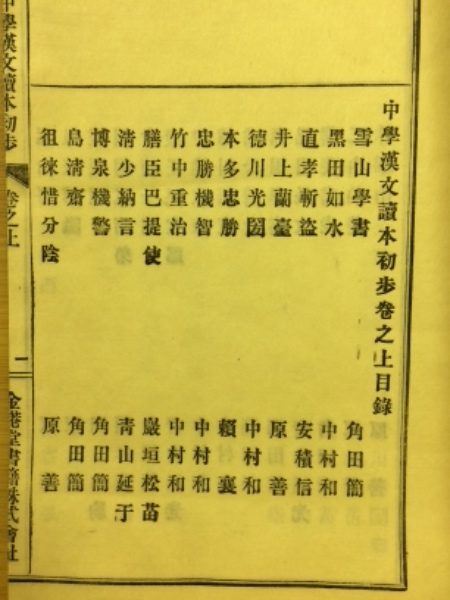 中學漢文讀本初步卷之上目錄
雪山學書 角田簡
黑田如水 中村和
直孝斬盜 安積信
井上蘭臺 原善
德川光圀 中村和
本多忠勝 賴襄
忠勝機智 中村和
竹中重治 中村和
膳臣巴提使 巖垣松苗
淸少納言 靑山延于
博泉機警 角田簡
島淸齋 角田簡
徂徠惜分陰 原善
中學漢文讀本初步 卷之上 一 金港堂書籍株式會社